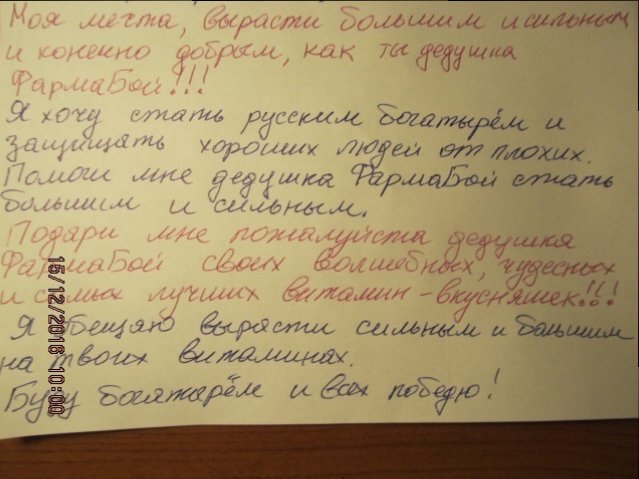 Моя мечта, вырасти большим и сильным
и конечно добрым, как ты дедушка
ФармаБой!!!
Я хочу стать русским богатырём и
защищать хороших людей от плохих.
Помоги мне дедушка ФармаБой стать
большим и сильным.
Подари мне пожалуйста дедушка
ФармаБой своих волшебных, чудесных
и самых лучших витамин-вкусняшек!!!
Я обещаю вырасти сильным и большим
на твоих витаминах.
Буду богатырём и всех победю!
15/12/2016 10:00